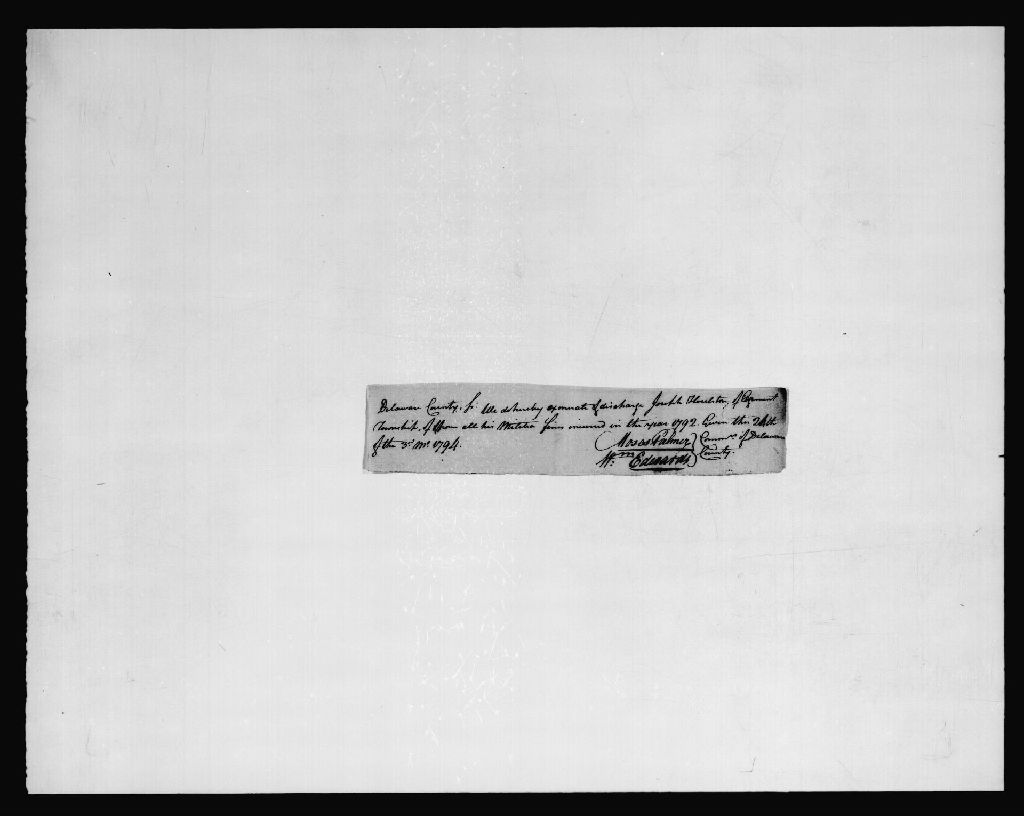 Delaware County, ss: We do hereby exonerate & discharge Joseph of
Township, of & from all his Militia fines incurred in the year 1792. Given this 24th
of the 3d mo 1794.
Moses Palmer Commrs of Delaware
Wm Edwards County.